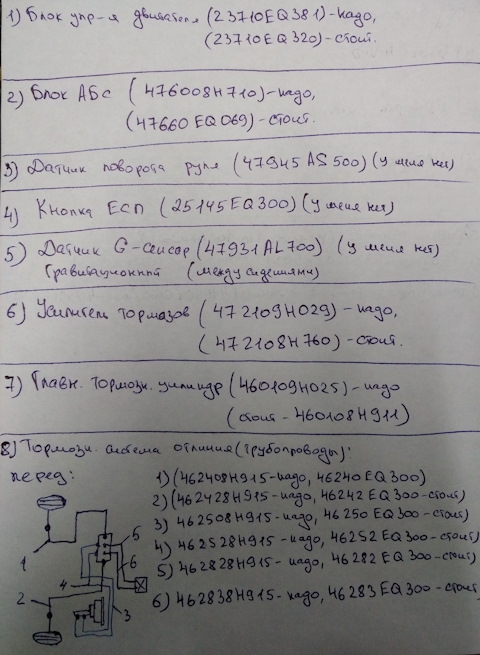 1) Блок упр-я двигателя (23710EQ381)-надо,
(23710EQ320)-стоит.
2) Блок АБС (476008H710)-надо,
(47660EQ069)-стоит.
3) Датчик поворота руля (47945AS500) (у меня нет)
4) Кнопка ЕСП (25145EQ300) (у меня нет)
5) Датчик G-сенсор (47931AL700) (у меня нет)
гравитационный (между сидениями)
6) Усилитель тормозов (472109H029)-надо,
(472108H760)-стоит.
7) Главн. тормозн. цилиндр (460109H025)-надо
(стоит-460108H911)
8) Тормозн. система отличия (трубопроводы):
перед:
1) (462408H915-надо, 46240EQ300)
2) (462428H915-надо, 46242EQ300-стоит)
3) 462508H915-надо, 46250EQ300-стоит)
4) 462528H915-надо, 46252EQ300-стоит)
5) 462828H915-надо, 46282EQ300-стоит)
6) 462838H915-надо, 46283EQ300-стоит
1
2
3
4
5
6